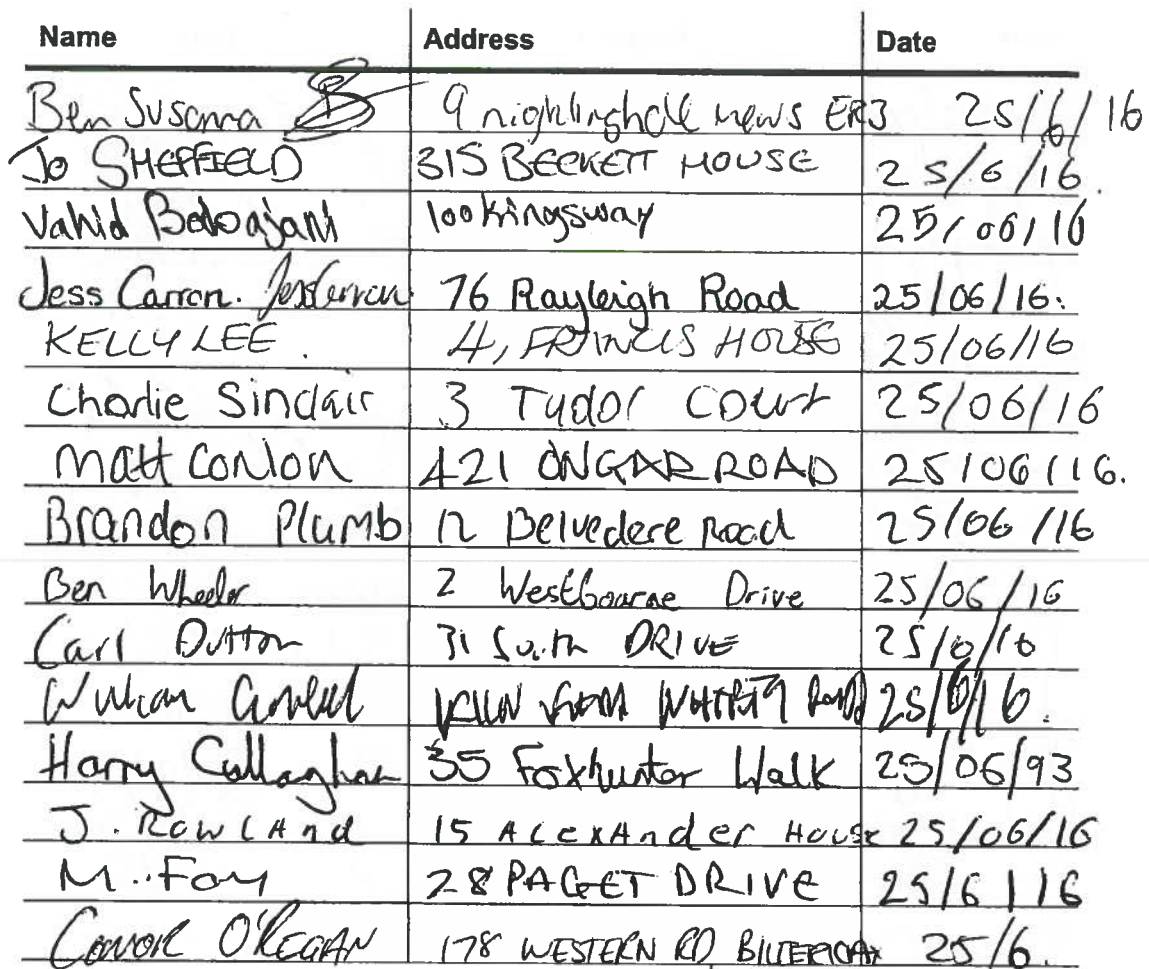 Name Address Date
Ben Susanna 9 nightinghale mews ER3 25/6/16
Jo SHEFFIELD 315 BECKETT HOUSE 25/6/16.
Vahid 100 Kingsway 25/06/16
Jess Carran. 76 Rayleigh Road 25/06/16.
KELLY LEE. 4, FRANCIS HOUSE 25/06/16
Charlie Sinclair 3 Tudor Court 25/06/16
Matt Conlon 421 ONGAR ROAD 25/06/16.
Brandon Plumb 12 Belvedere Road 25/06/16
Ben Wheeler 2 Westbourne Drive 25/06/16
Carl Dutton 31 South DRIVE 25/6/16
William 25/6/16.
Harry Callaghan 35 Foxhunter Walk 25/06/93
J. Rowland 15 Alexander House 25/06/16
M. Foy 28 PAGET DRIVE 25/6/16
Conor O'REGAN 178 WESTERN RD BILLERICAY 25/6.